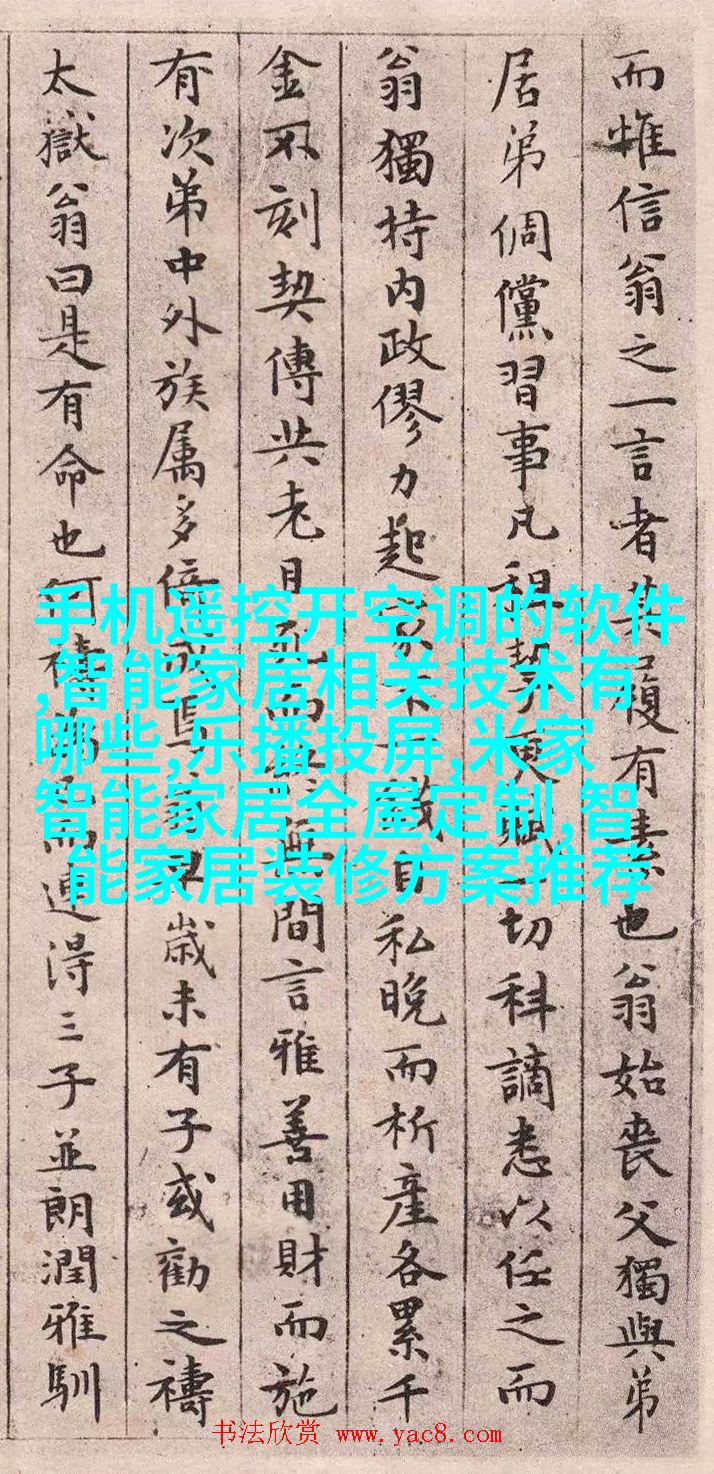 而惟信翁之一言者其履有素也翁始喪父獨與弟
居弟倜儻習事凡租更賦一切科謫悉以任之而
翁獨持内政僇力起家不一錢自私晚而析產各累千
金不刻契傅共老且死而無間言雅善用財而施
有次第中外族属多歲未有子或勸之禱
太嶽翁曰是有命也何禱而連得三子並朗潤雅馴
手机遥控开空调的软件
,智能家居相关技术有
哪些,乐播投屏,米家
智能家居全屋定制,智
能家居装修方案推荐
书法欣赏 www.yac8.com